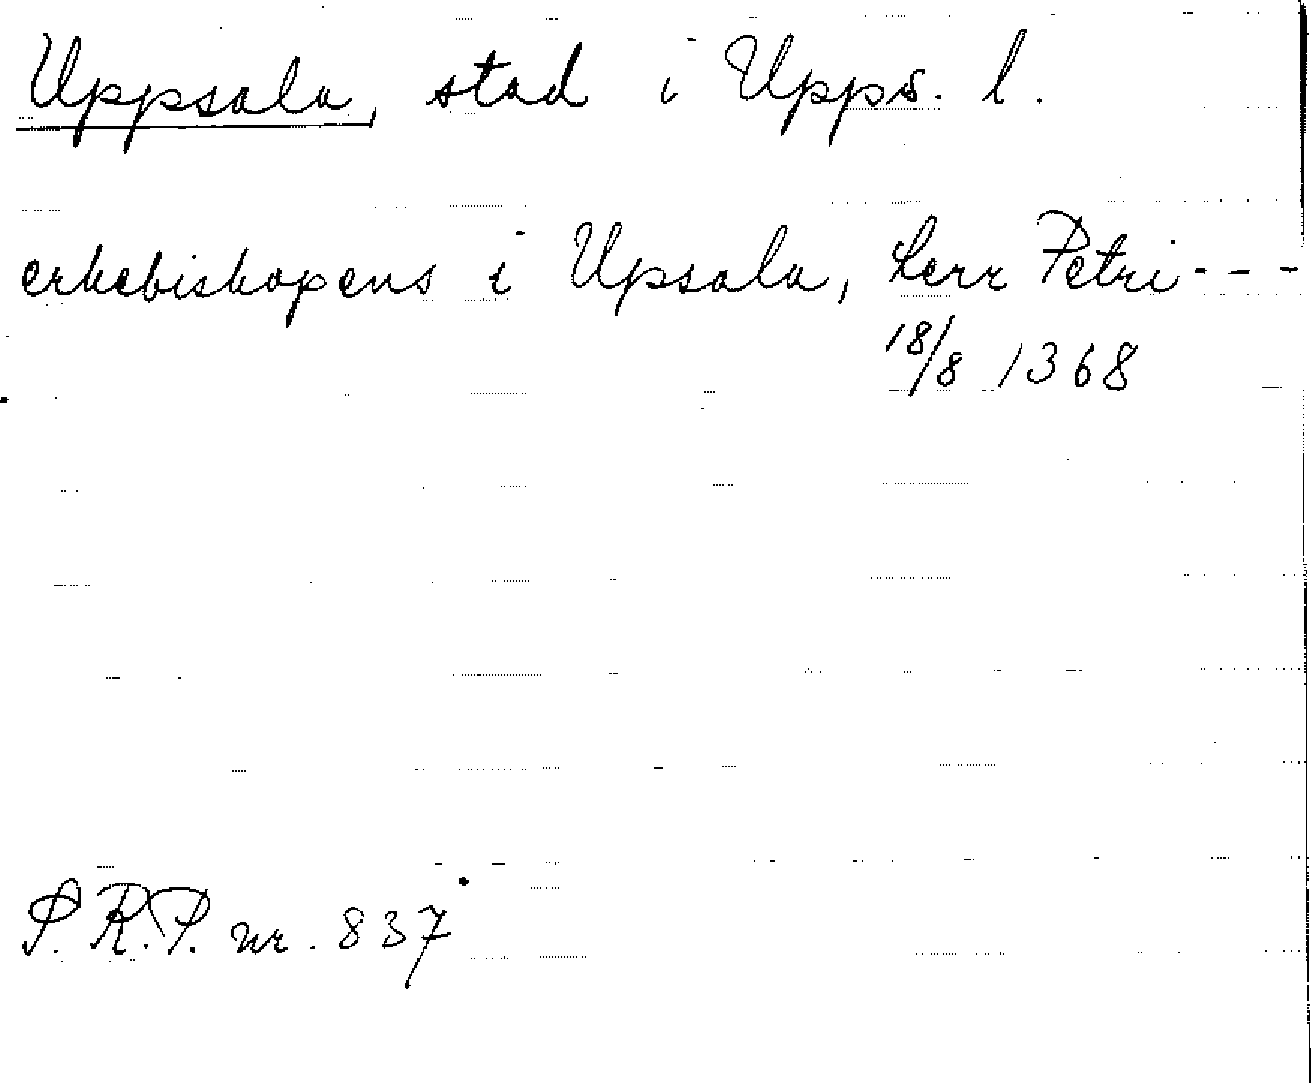 Uppsala, stad i Upps. l.
erkebiskopens i Upsala, herr Petri - - -
18/8 1368
S. R. P. nr. 837